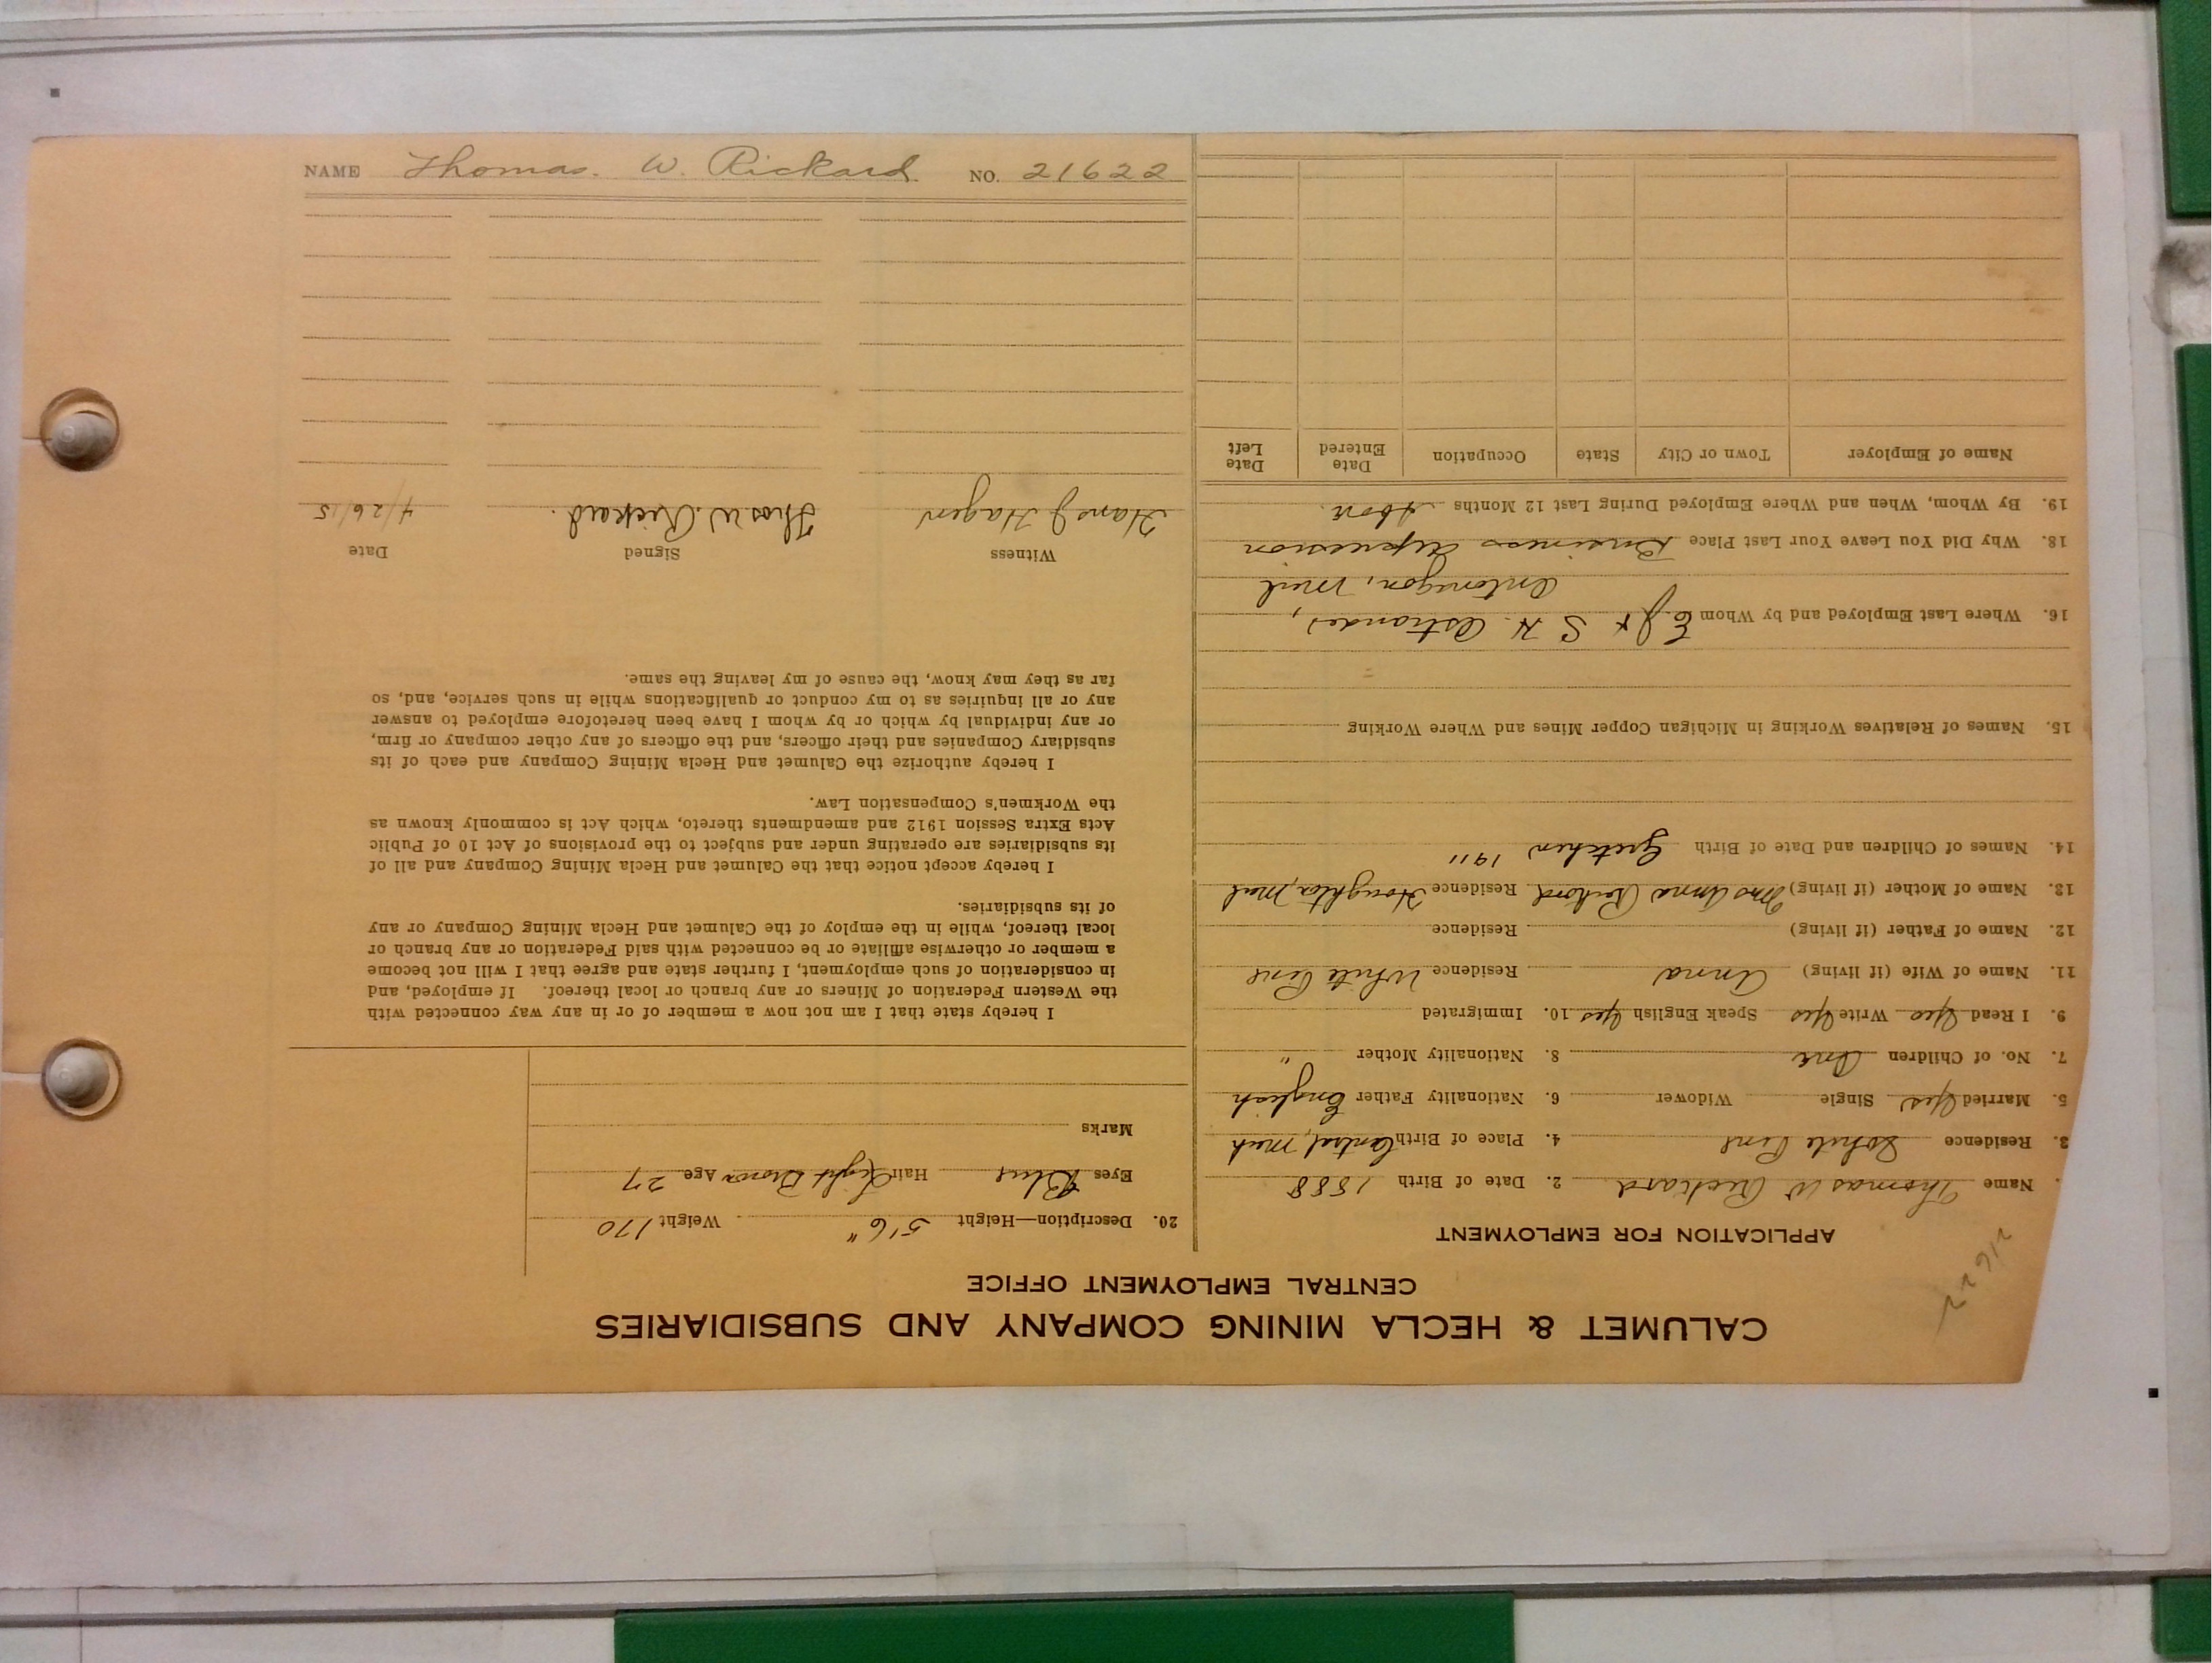 CALUMET & HECLA MINING COMPANY AND SUBSIDIARIES
CENTRAL EMPLOYMENT OFFICE
21622
APPLICATION FOR EMPLOYMENT
Name Thomas W Rickard 2. Date of Birth 1888
3. Residence White Pine 4. Place of Birth Central, Mich
5. Married Yes Single Widower 6. Nationality Father English
7. No. of Children One 8. Nationality Mother "
9. I Read Yes Write Yes Speak English Yes 10. Immigrated
11. Name of Wife (if living) Anna Residence White Pine
12. Name of Father (if living) Residence
13. Name of Mother (if living) Mrs Anna Rickard Residence Houghton, Mich
14. Names of Children and Date of Birth Gretchen 1911
15. Names of Relatives Working in Michigan Copper Mines and Where Working
16. Where Last Employed and by Whom E J & S H
Ontonagon, Mich
18. Why Did You Leave Your Last Place Business depression
19. By Whom, When and Where Employed During Last 12 Months Above.
Name of Employer Town or City State Occupation Date Entered Date Left
20. Description—Height 5'6" Weight 170
Eyes Blue Hair Light Brown Age 27
Marks
I hereby state that I am not now a member of or in any way connected with
the Western Federation of Miners or any branch or local thereof. If employed, and
in consideration of such employment, I further state and agree that I will not become
a member or otherwise affiliate or be connected with said Federation or any branch or
local thereof, while in the employ of the Calumet and Hecla Mining Company or any
of its subsidiaries.
I hereby accept notice that the Calumet and Hecla Mining Company and all of
its subsidiaries are operating under and subject to the provisions of Act 10 of Public
Acts Extra Session 1912 and amendments thereto, which Act is commonly known as
the Workmen's Compensation Law.
I hereby authorize the Calumet and Hecla Mining Company and each of its
subsidiary Companies and their officers, and the officers of any other company or firm,
or any individual by which or by whom I have been heretofore employed to answer
any or all inquiries as to my conduct or qualifications while in such service, and, so
far as they may know, the cause of my leaving the same.
Witness Signed Date
Hans J Hagen Thos W. Rickard. 4/26/15
NAME Thomas. W. Rickard NO. 21622